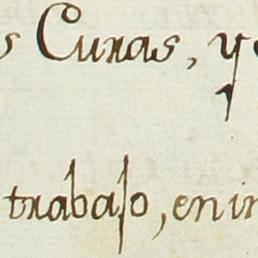 s Curas, y
trabajo, en in